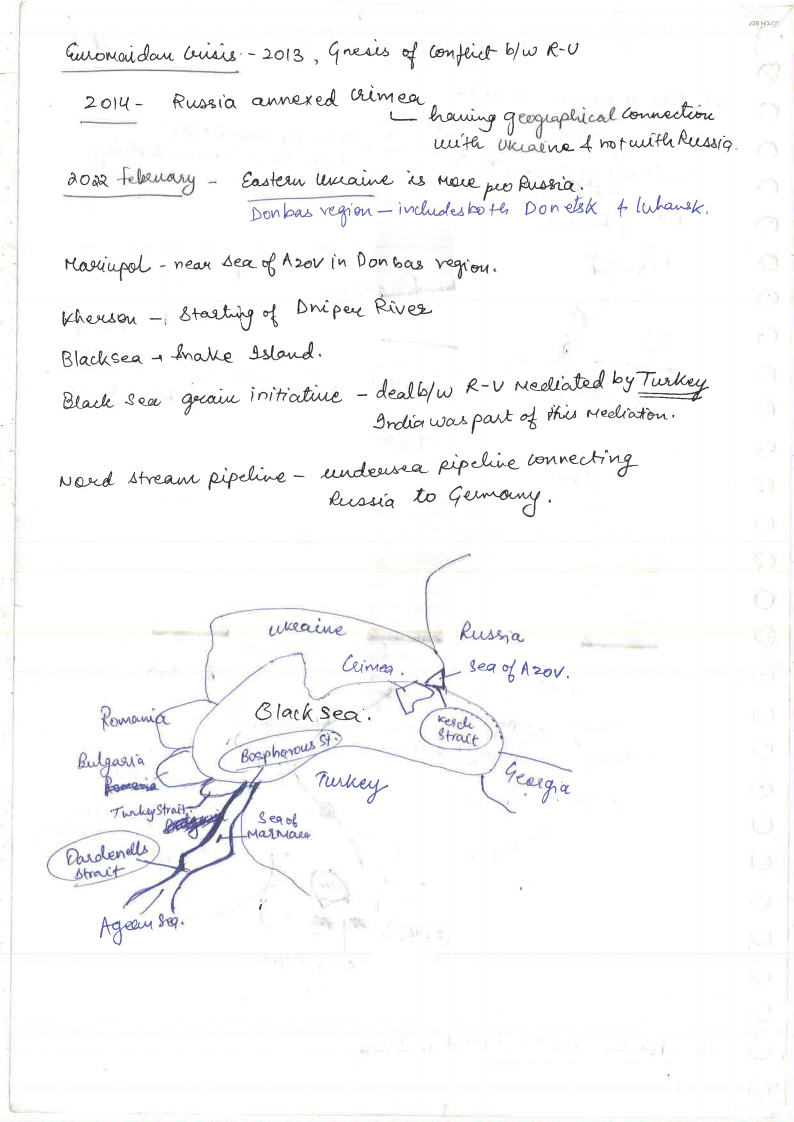 Euromaidan Crisis - 2013, Gnesis of Conflict b/w R-U
2014 - Russia annexed Crimea
having geographical connection
with Ukraine & not with Russia.
2022 February - Eastern Ukraine is more pro Russia.
Donbas region - includes both Donetsk & luhansk.
Mariupol - near Sea of Azov in Donbas region.
Kherson - Starting of Dniper River
Blacksea → Snake Island.
Black Sea grain initiative - deal b/w R-U Mediated by Turkey
India was part of this Mediation.
Nord stream pipeline - undersea pipeline connecting
Russia to Germany.
Ukraine
Russia
Crimea.
Sea of Azov.
Romania
Black sea.
Kerch
Strait
Bulgaria
Bospherous St.
Romania
Turkey
Georgia
Turkey Strait.
Sea of
Marmara
Dardenells
Strait
Agean Sea.